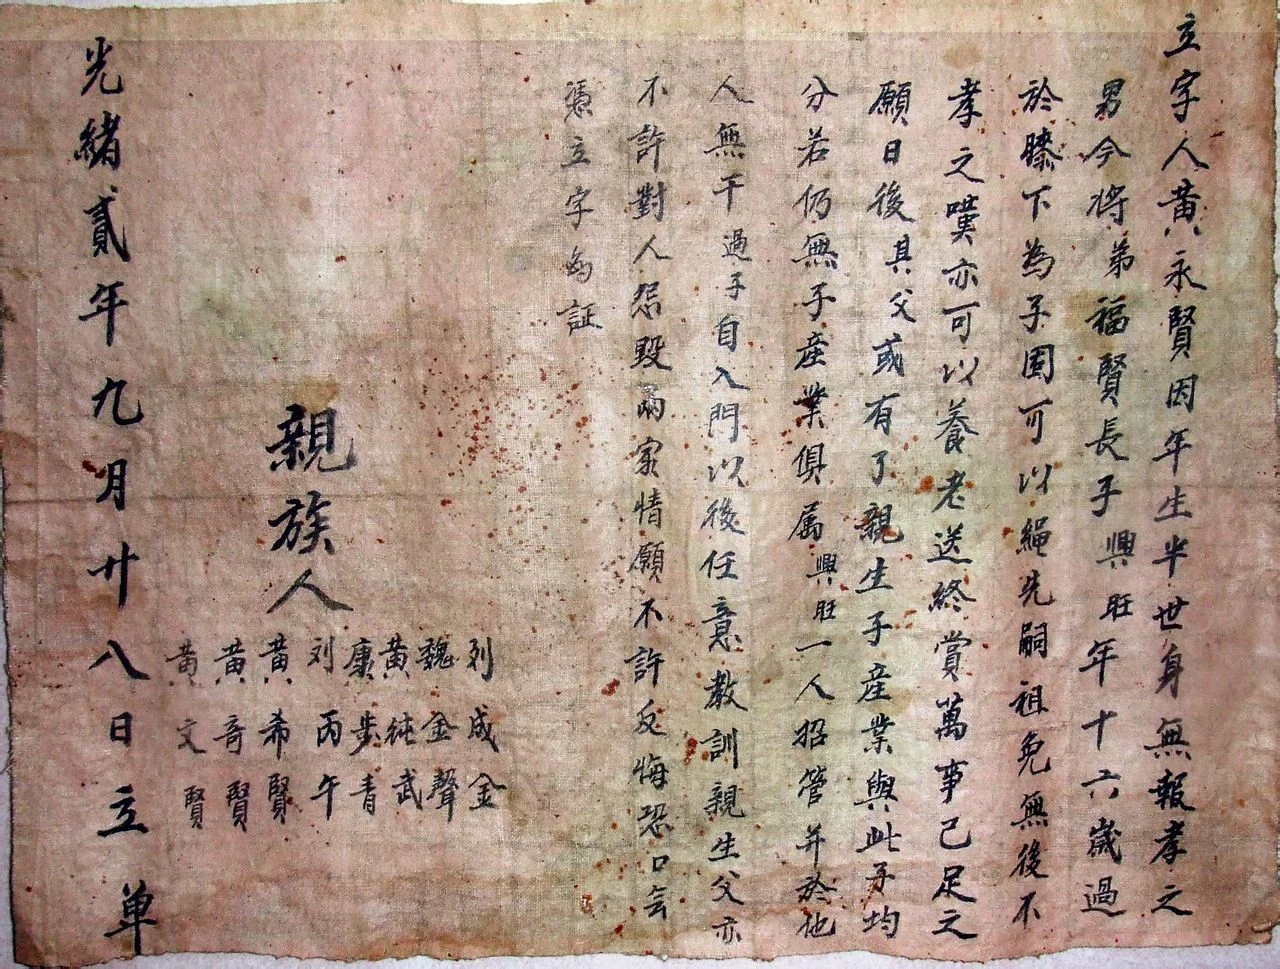 立字人黃永賢因年生半世身無報孝之
男今将弟福賢長子興旺年十六歲過
於膝下為子固可以繩先嗣祖免無後不
孝之嘆亦可以養老送終賞萬事已足之
願日後其父或有了親生子產業與此子均
分若仍無子產業俱属興旺一人招管并於他
人無干過子自入門以後任意教訓親生父亦
不許對人怨毀两家情願不許反悔恐口無
憑立字為証
親族人
刘成金
魏金聲
黃純武
康步青
刘丙午
黃希賢
黃奇賢
黃文賢
光緒貳年九月廿八日立单